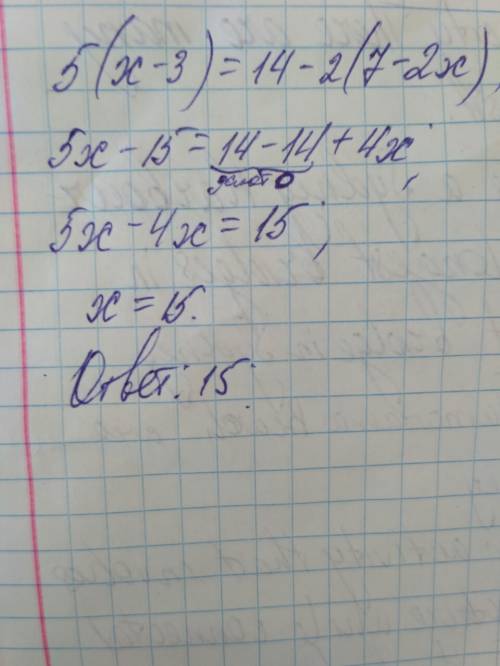 5(x-3)=14-2(7-2x),
5x-15=14-14+4x;
дают 0
5x-4x=15;
x=15.
Ответ: 15.